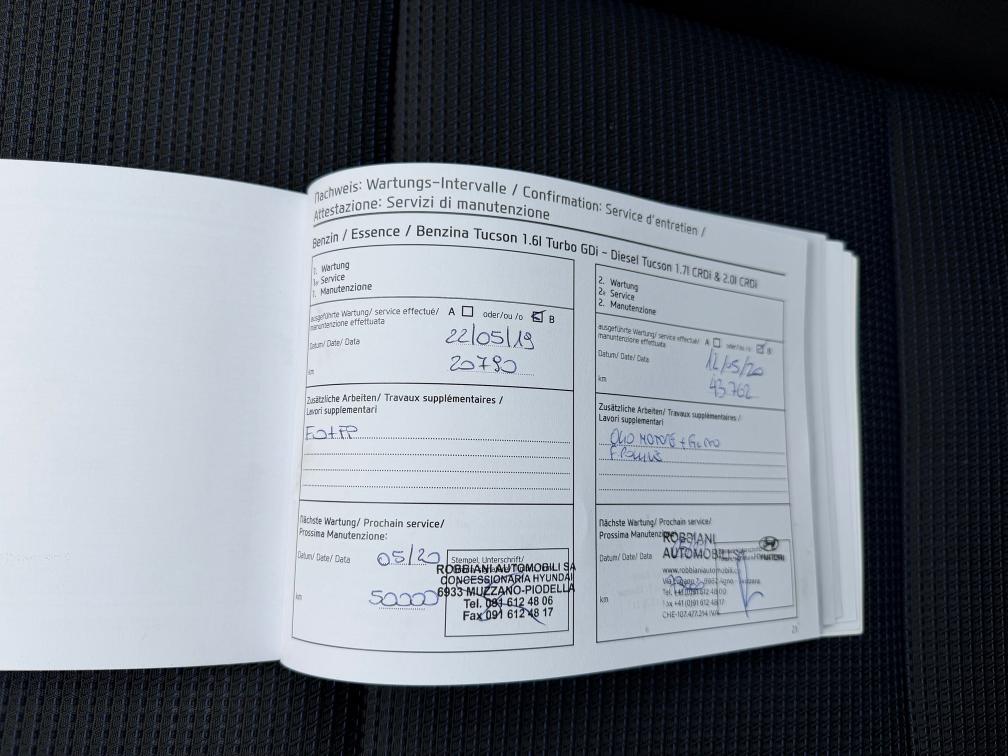 Nachweis: Wartungs-Intervalle / Confirmation: Service d'entretien /
Attestazione: Servizi di manutenzione
Benzin / Essence / Benzina Tucson 1.6l Turbo GDi - Diesel Tucson 1.7l CRDi & 2.0l CRDi
1. Wartung
1. Service
1. Manutenzione
ausgeführte Wartung/ service effectué/ A oder/ou /o B
manuntenzione effettuata
Datum/ Date/ Data 22/05/19
km 20790
Zusätzliche Arbeiten/ Travaux supplémentaires /
Lavori supplementari
Nächste Wartung/ Prochain service/
Prossima Manutenzione:
Datum/ Date/ Data 05/20
km 50000
Stempel, Unterschrift/
ROBBIANI AUTOMOBILI SA
CONCESSIONARIA HYUNDAI
6933 MUZZANO-PIODELLA
Tel. 091 612 48 06
Fax 091 612 48 17
2. Wartung
2. Service
2. Manutenzione
ausgeführte Wartung/ service effectué/ A oder/ou /o B
manuntenzione effettuata
Datum/ Date/ Data 12/05/20
km 43.762
Zusätzliche Arbeiten/ Travaux supplémentaires /
Lavori supplementari
OLIO MOTORE +
Nächste Wartung/ Prochain service/
Prossima Manutenzione
Datum/ Date/ Data
km
ROBBIANI
AUTOMOBILI SA HYUNDAI
www.robbianiautomobili.c
Tel. +41 (0)91 612 48 00
Fax +41 (0)91 612 48 17
CHE-107.477.214 IVA